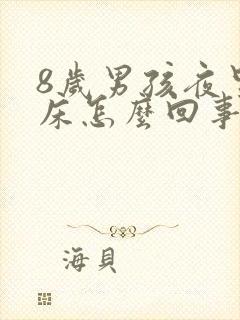 8歲男孩夜
床怎麼回事
海貝